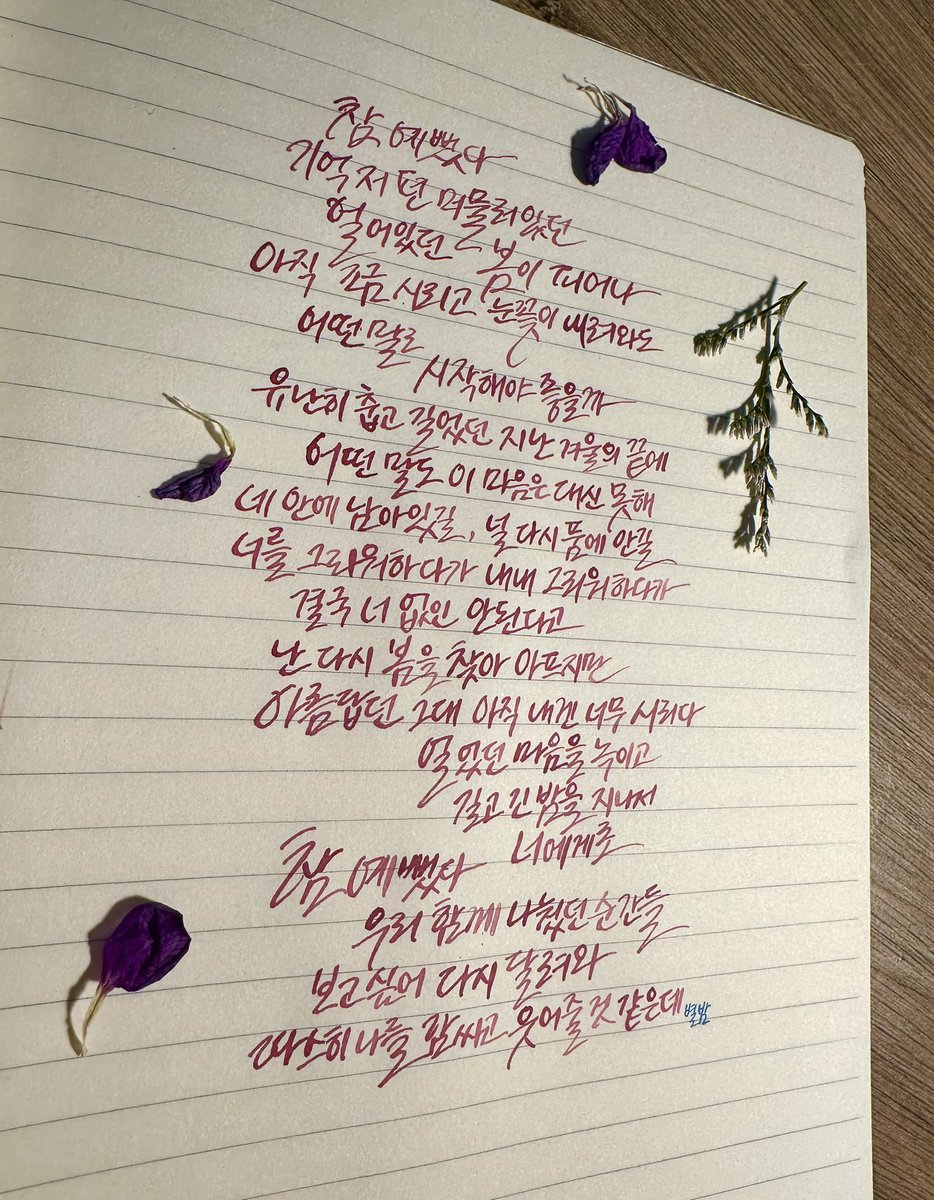 참 예뻤다
기억 저 편 머물러있던
얼어있던 봄이 피어나
아직 조금 시리고 눈꽃이 내려와도
어떤 말로
시작해야 좋을까
유난히 춥고 길었던 지난 겨울의 끝에
어떤 말도 이 마음은 대신 못해
네 안에 남아있길, 널 다시 품에 안길
너를 그리워하다가 내내 그리워하다가
결국 너 없인 안된다고
난 다시 봄을 찾아 아프지만
아름답던 그대 아직 내겐 너무 시리다
얼었던 마음을 녹이고
길고 긴 밤을 지나서
너에게로
참 예뻤다
우리 함께 나눴던 순간들
보고싶어 다시 달려와
따스히 나를 감싸고 웃어줄 것 같은데
별밤